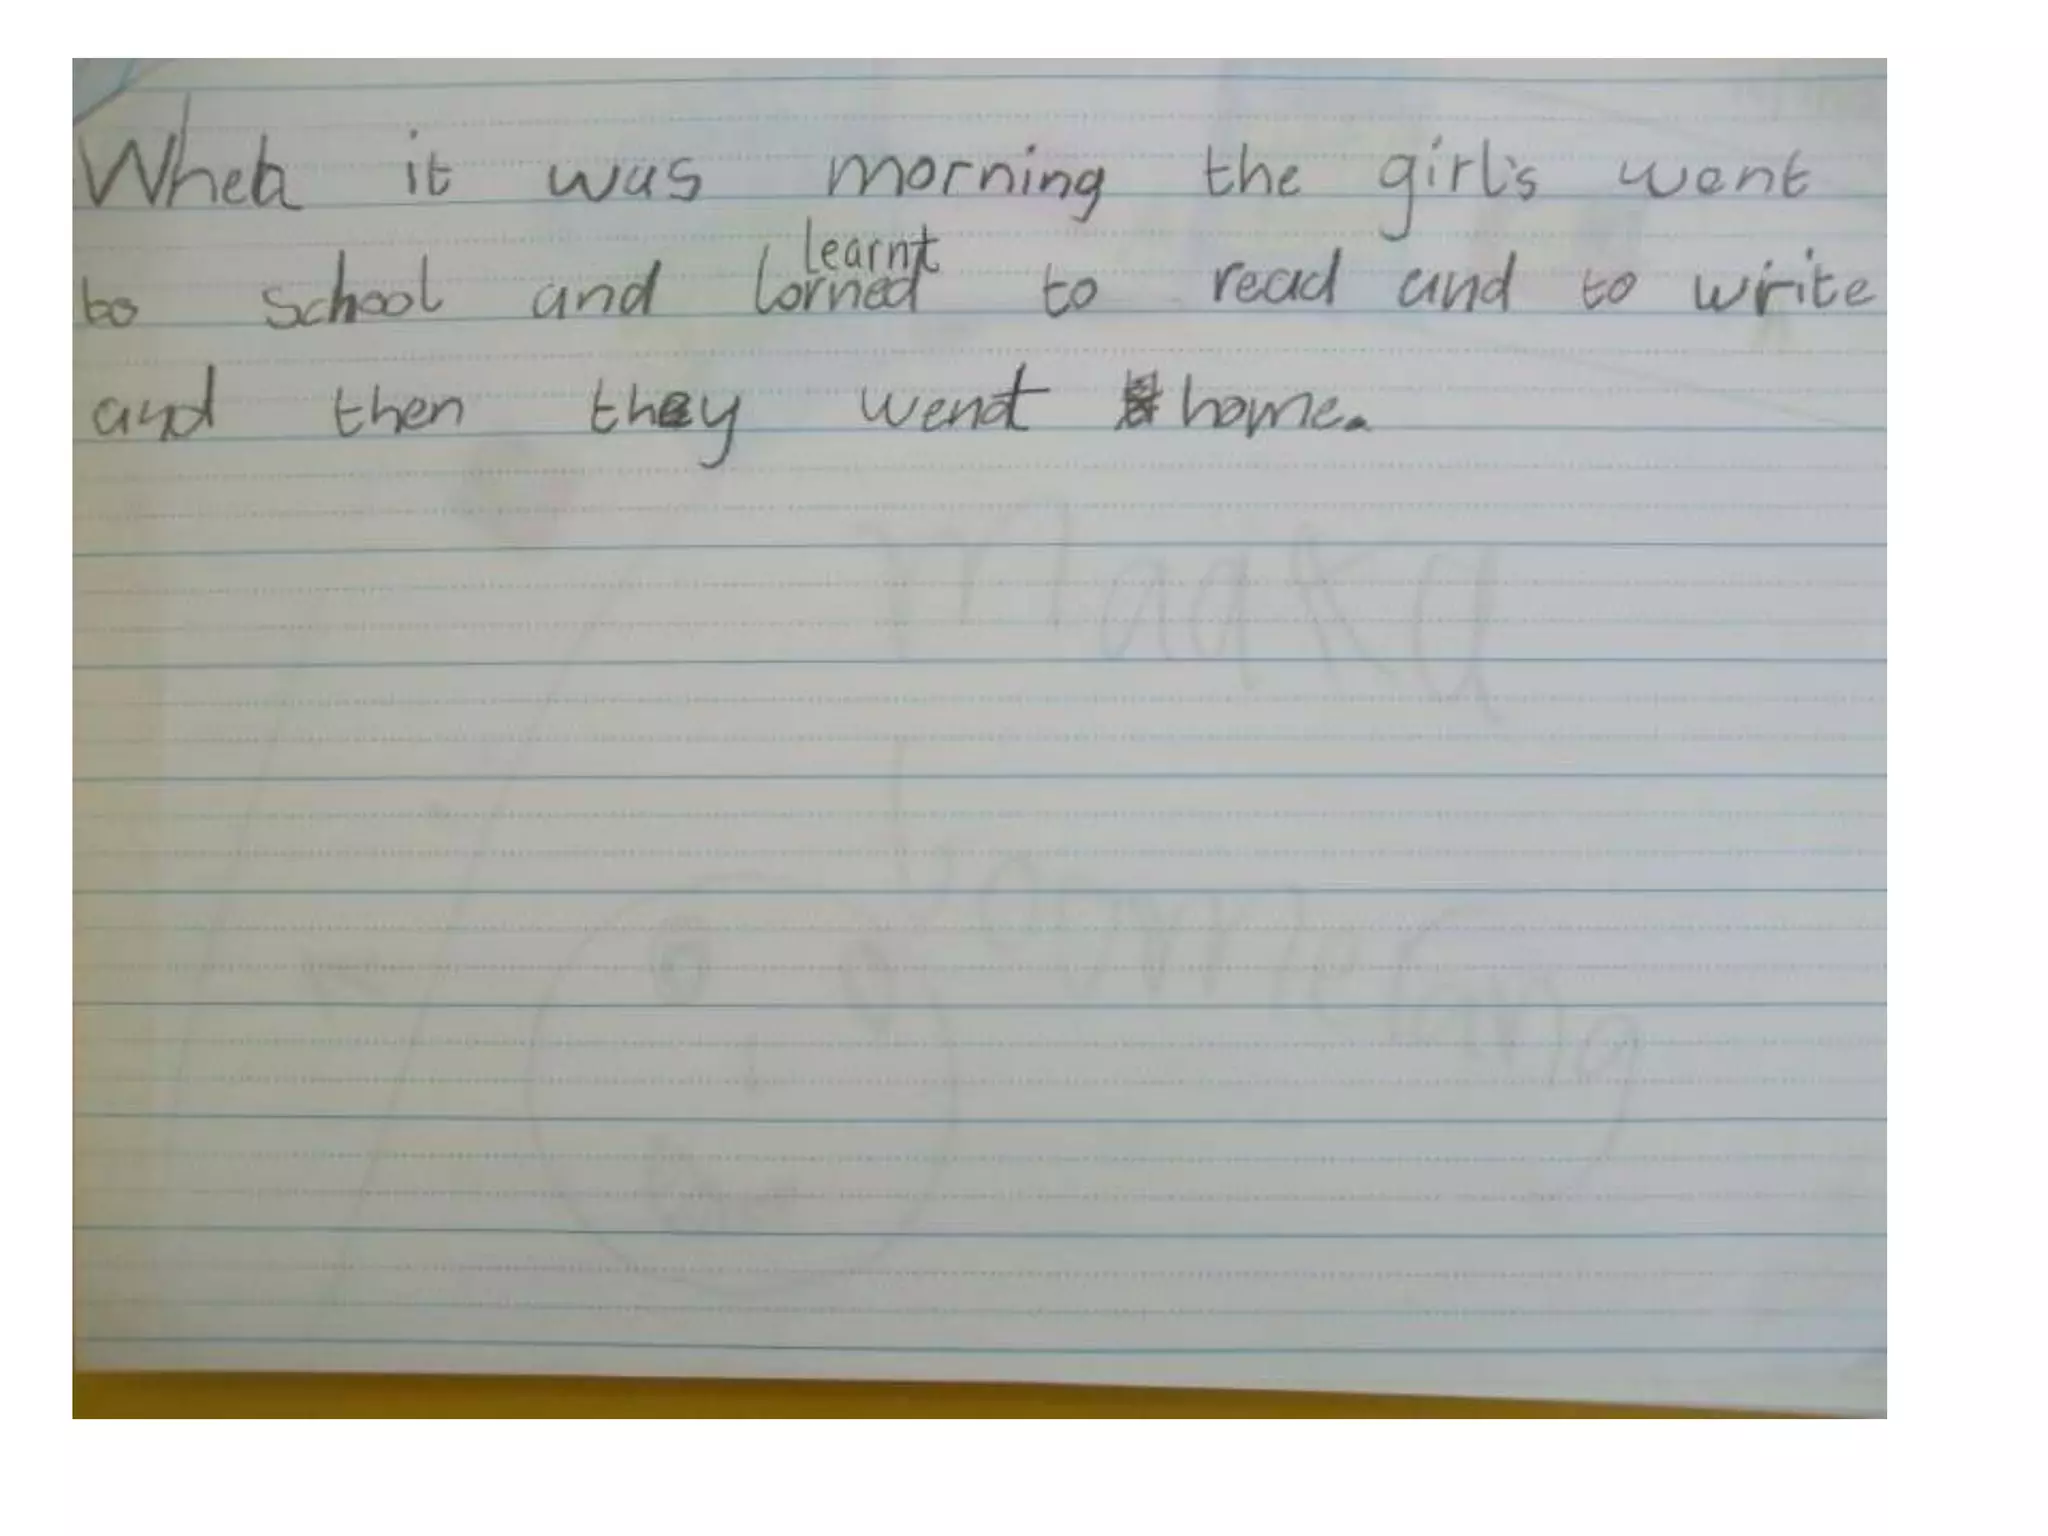 When it was morning the girl's went
learnt
to school and lorned to read and to write
and then they went home.